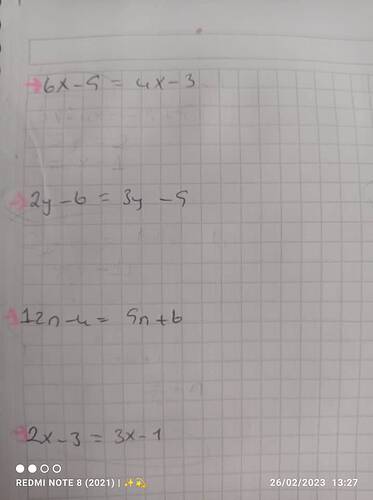 6x-5 = 4x-3
2y-6 = 3y-5
12n-4 = 5n+6
2x-3 = 3x-1
REDMI NOTE 8 (2021) | ✨💫 26/02/2023 13:27